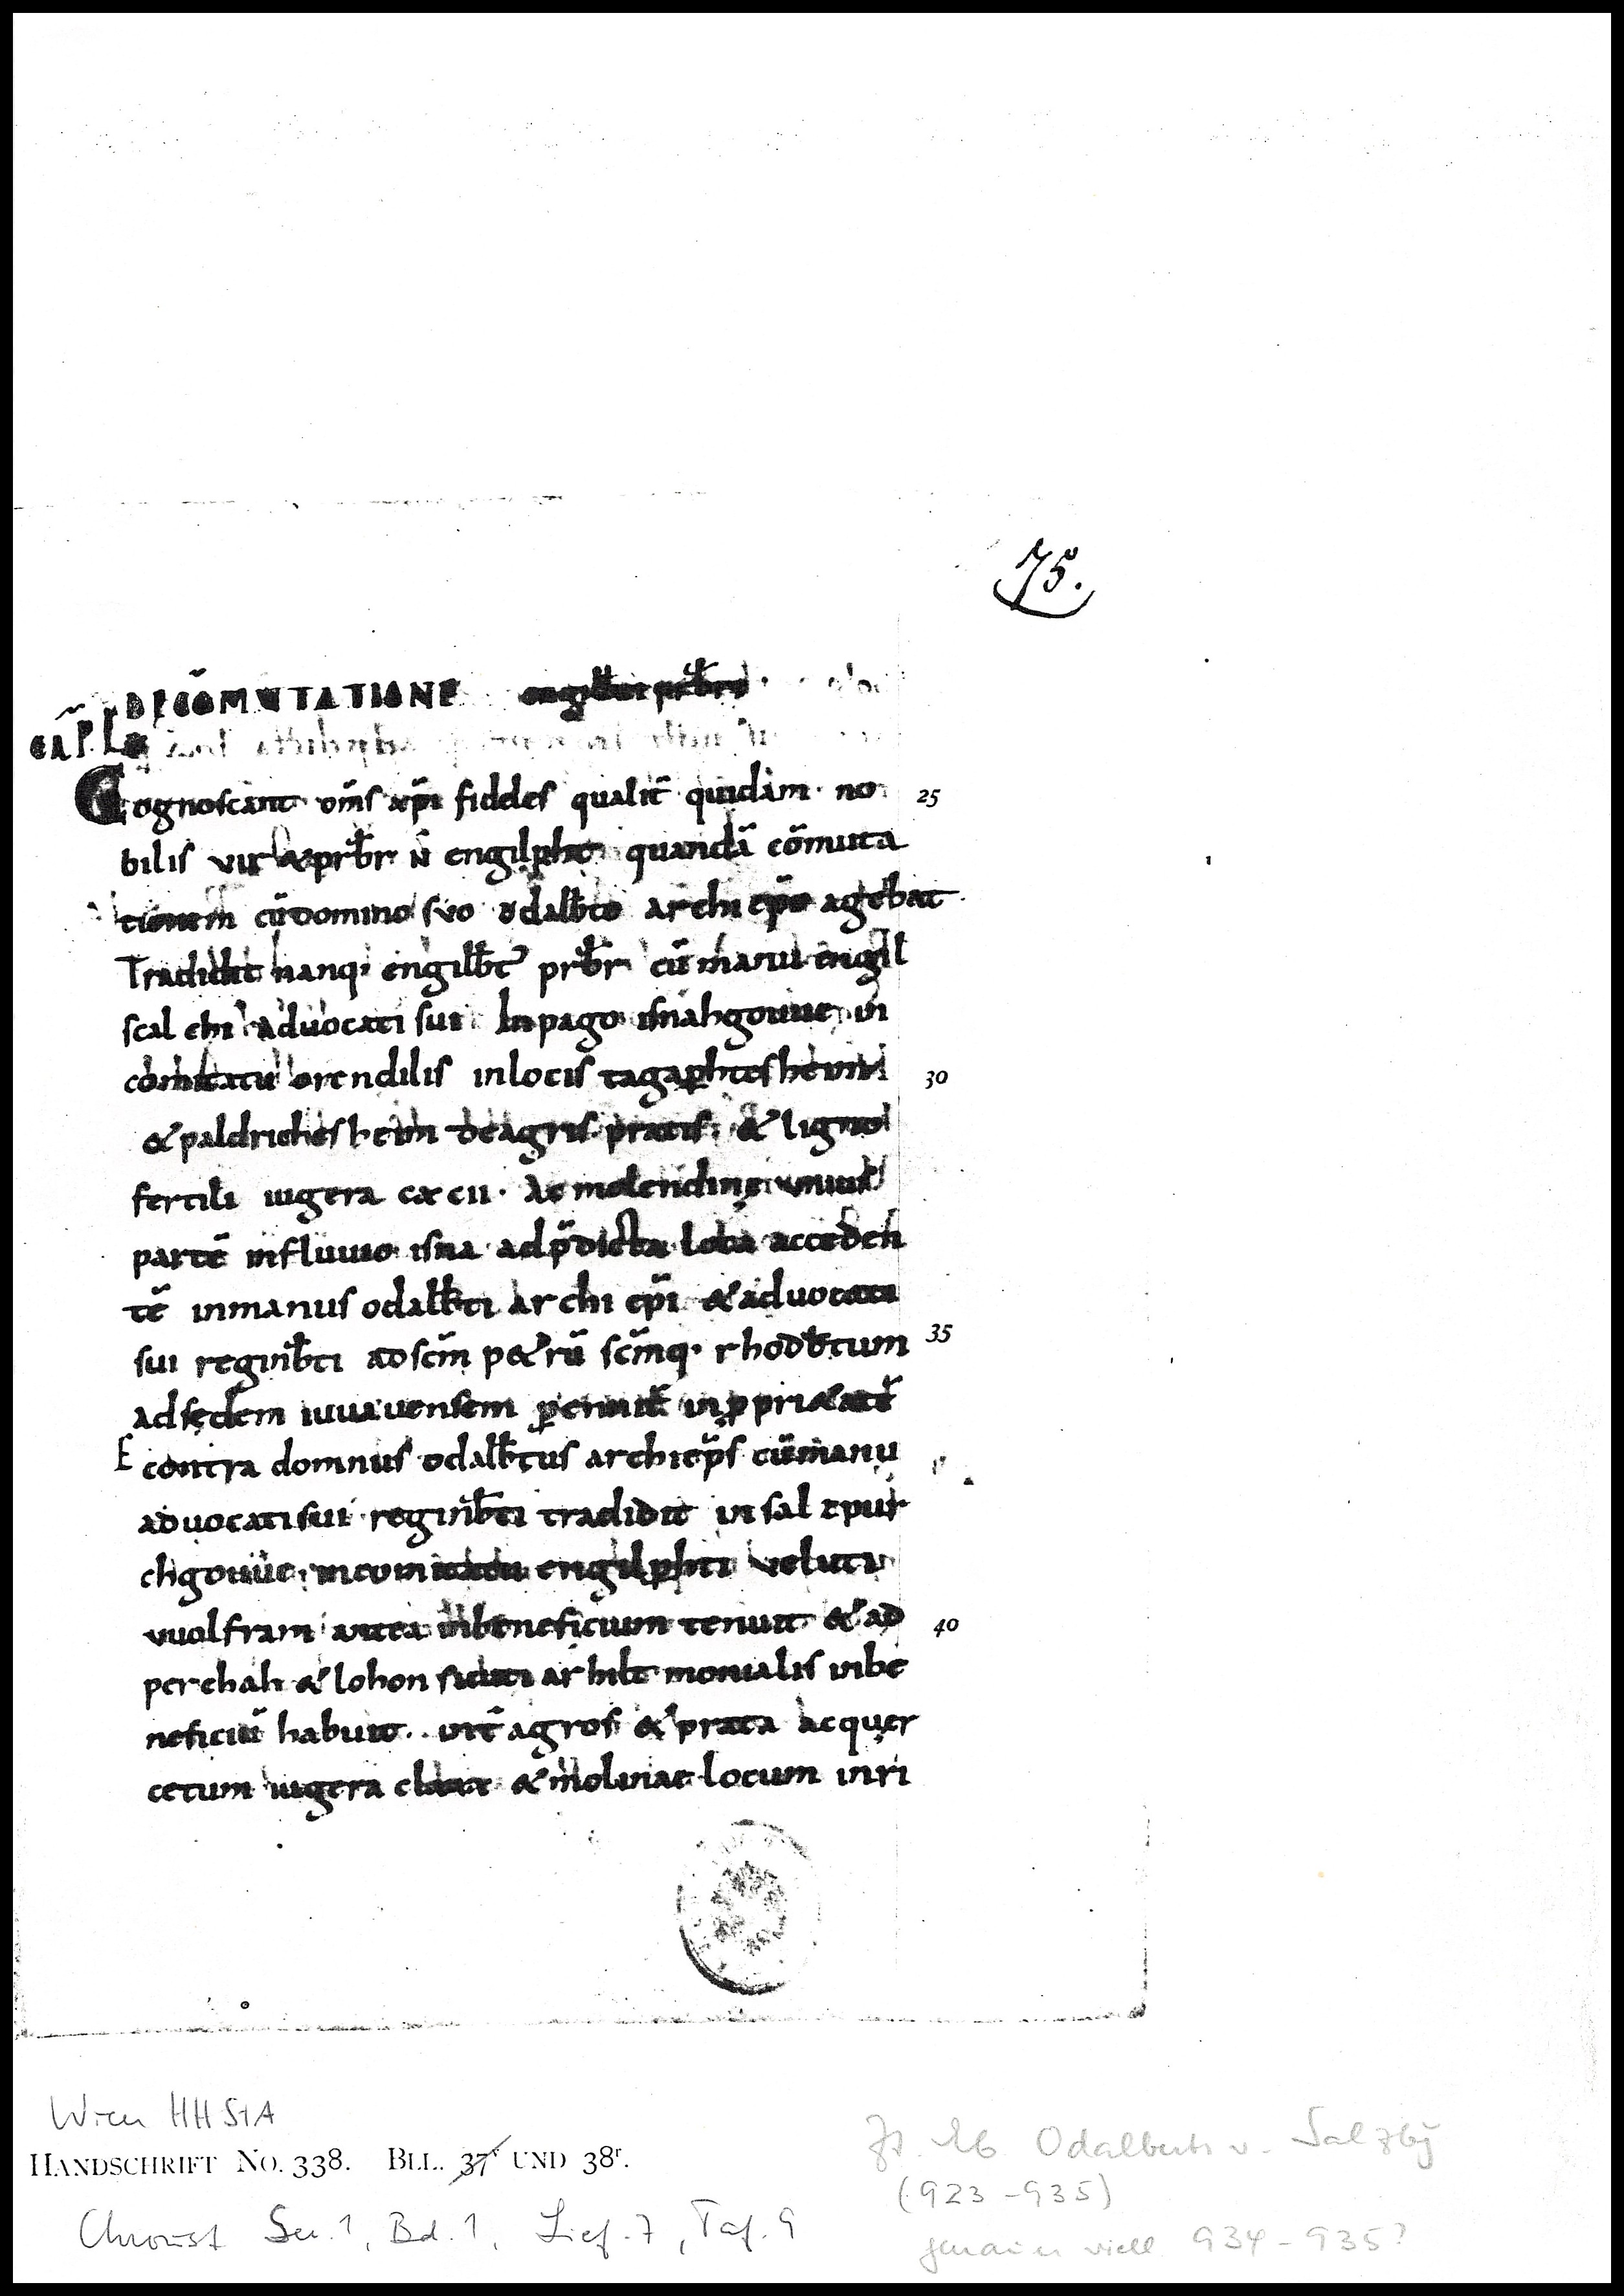 75.
DE CO͂MUTATIONE engilb̄ti pr̄bri
CAP̃L
Cognoscant om̄s xp̄i fideles qualit̄ quidam · no
bilis vir & pr̄br N̄ engilpht quandā cōmuta
tionem cū domino suo odalb̄to archiep̄o agebat
Tradidit nanq· engilb̄t pr̄br cū manu engil
scalchi advocati sui In pago isnahgouue in
comitatu orendilis in locis tagaphtesheim
& paldrichesheim de agris pratis & ligno
fertili iugera cxcii · Ac molendinę unius
partē in fluuio isna ad p̄dicta loca acceden
tē in manus odalb̄ti archiep̄i & aduocati
sui reginb̄ti ad sc̄m p&rū sc̄mq· rhodb̄tum
ad sedem iuuauensem pennit̄ in ppri&atē
E contra domnus odalb̄tus archiep̄s cū manu
aduocati sui reginb̄ti tradidit in salzpur
chgouue in comitatu engilphti veluti
vuolfram antea in beneficium tenuit & ad
perchah & lohon sicuti arhilt monialis in be
neficiū habuit · int̄ agros & prata ac quer
cetum iugera & molinae locum in ri
25
30
35
40
Wien HHStA
HANDSCHRIFT NO. 338. BLL. 37v UND 38r.
Chroust Ser. 1, Bd. 1, Lief. 7, Taf. 9
Odalberts v. Salzbg
(923-935)
genauer viell. 934-935?